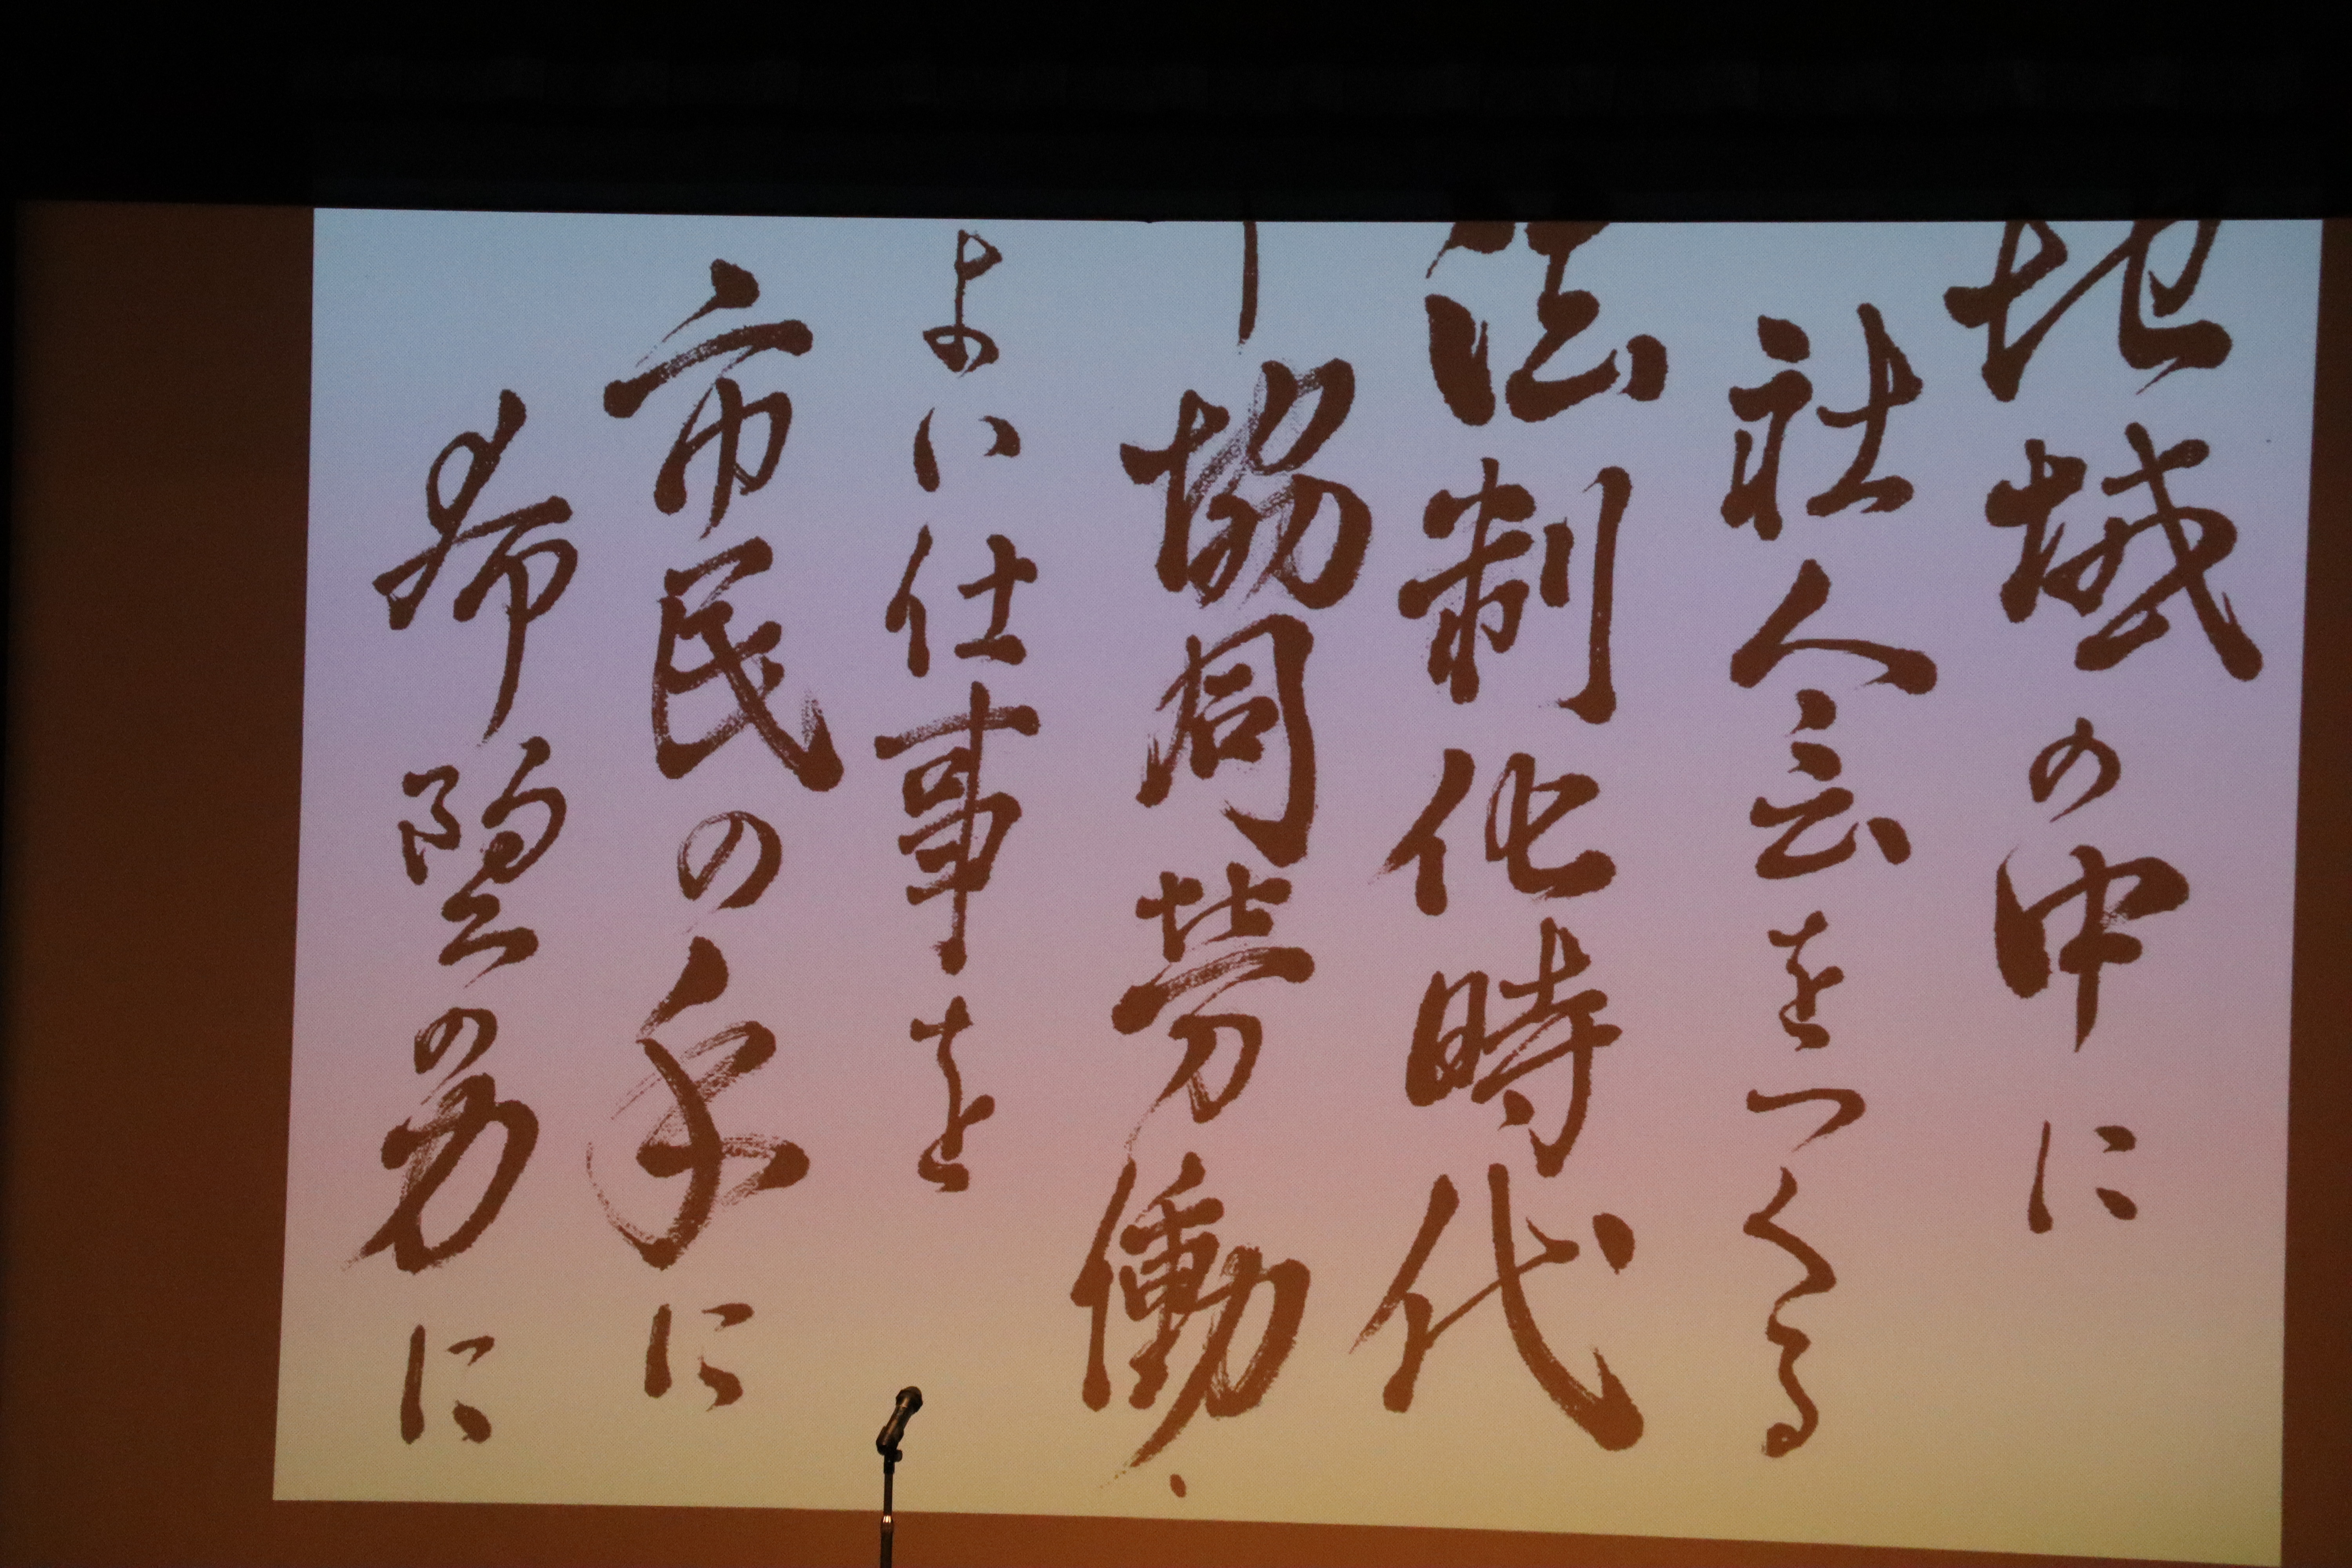 地域の中に
社会をつくる
法制化時代
ー協同労働・
よい仕事を
市民の手に
希望の力に